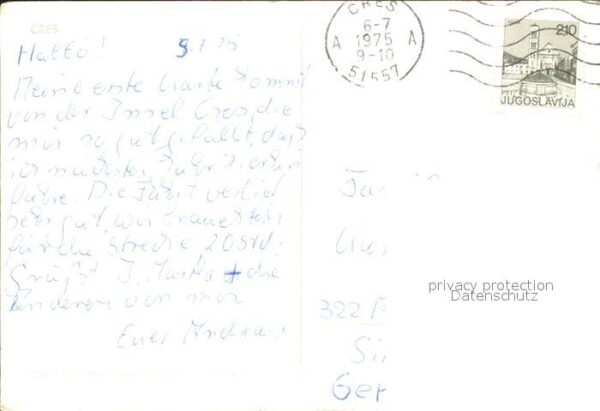 CRES
Hallo! 5.7.75
Meine erste Karte kommt
von der Insel Cres, die
mir so gut gefällt, daß
ich nächstes Jahr
fahre. Die Fahrt verlief
sehr gut, wir brauchten
für die Strecke 20 Std.
Grüßt J. + die
anderen von mir
Euer Andreas
CRES
6-7
1975
9-10
51557
A A
2,10
PTT
JUGOSLAVIJA
322
Ger
privacy protection
Datenschutz